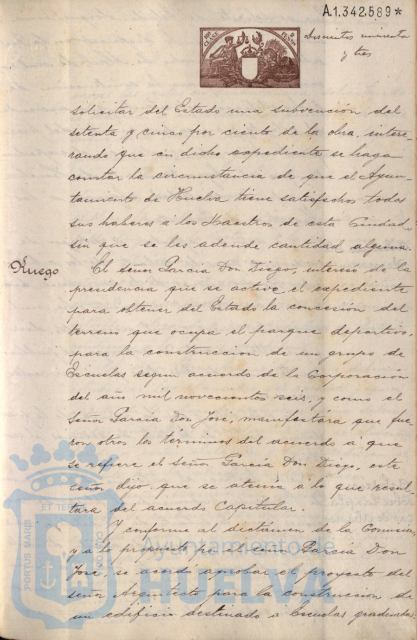 A.1.342.589*
Doscientos noventa
y tres
solicitar del Estado una subvención del
setenta y cinco por ciento de la obra, intere-
sando que en dicho expediente se haga
constar la circunstancia de que el Ayun-
tamiento de Huelva tiene satisfechos todos
sus haberes á los Maestros de esta Ciudad,
sin que se les adeude cantidad alguna.
Ruego
El señor Garcia Don Diego, interesó de la
presidencia que se active el expediente
para obtener del Estado la concesión del
terreno que ocupa el parque deportivo,
para la construccion de un grupo de
Escuelas segun acuerdo de la Corporación
del año mil novecientos seis, y como el
Señor Garcia Don José, manifestára que fue
ron otros los términos del acuerdo á que
se refiere el Señor Garcia Don Diego, este
señor dijo, que se atenia á lo que resul
tára del acuerdo capitular.
Y conforme al dictámen de la Comision
y á lo propuesto por el señor Garcia Don
José, se acordó aprobar el proyecto del
señor Arquitecto para la construcción de
un edificio destinado a Escuelas graduadas
PORTUS MARIS
ET TERR
Ayuntamiento de
HUELVA